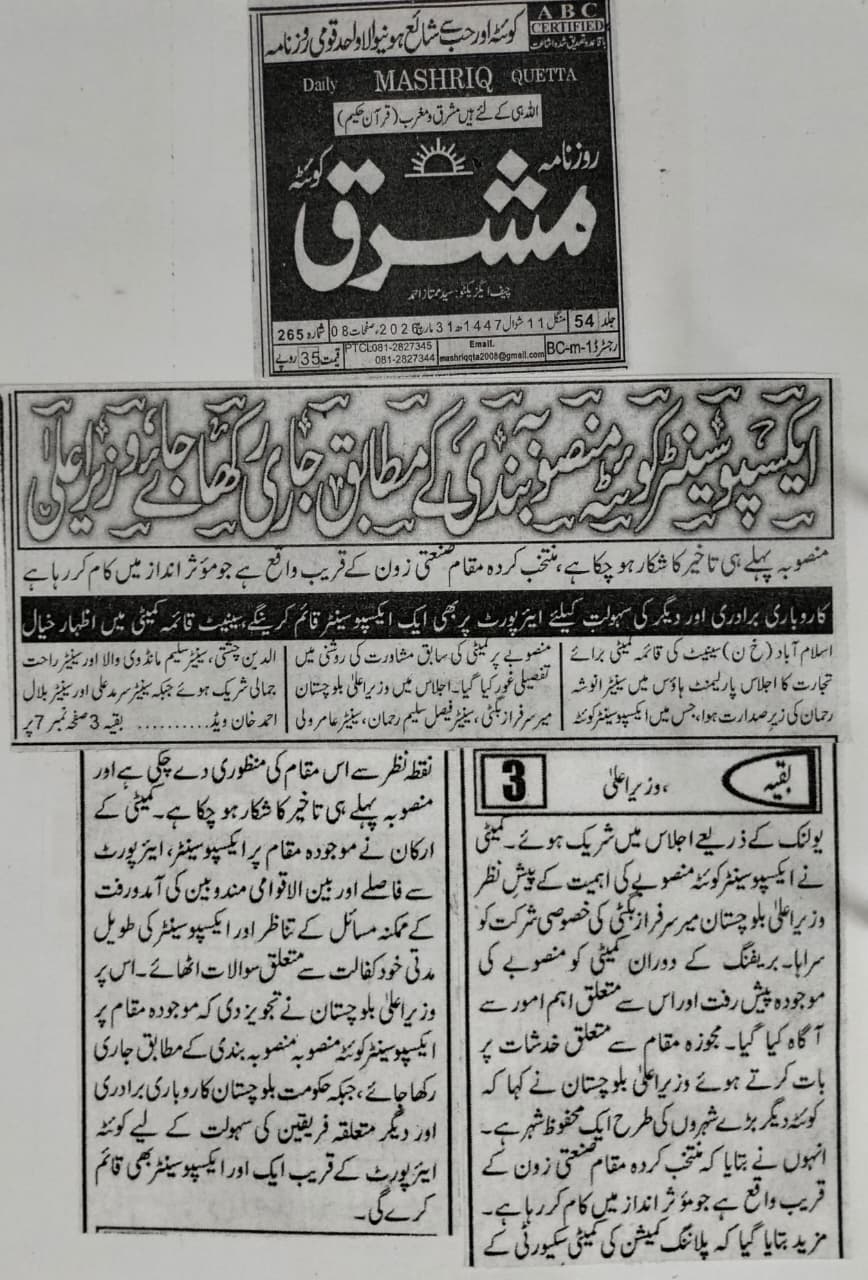 کوئٹہ اور حب سے شائع ہونیوالا واحد قومی روزنامہ
ABC
CERTIFIED
باقاعدہ تصدیق شدہ اشاعت
Daily MASHRIQ QUETTA
اللہ ہی کے لئے ہیں مشرق و مغرب (قرآن حکیم)
روزنامہ
مشرق
کوئٹہ
چیف ایگزیکٹو: سید ممتاز احمد
جلد 54 منگل 11 شوال 1447ھ 31 مارچ 2026ء صفحات 08 شمارہ 265
رجسٹرڈ BC-m-1
Email.
mashriqqta2008@gmail.com
PTCL081-2827345
081-2827344
قیمت 35 روپے
ایکسپو سینٹر کوئٹہ منصوبہ بندی کے مطابق جاری رکھا جائے، وزیراعلیٰ
منصوبہ پہلے ہی تاخیر کا شکار ہو چکا ہے، منتخب کردہ مقام صنعتی زون کے قریب واقع ہے جو مؤثر انداز میں کام کر رہا ہے
کاروباری برادری اور دیگر کی سہولت کیلئے ایئرپورٹ پر بھی ایک ایکسپو سینٹر قائم کرینگے، سینیٹ قائمہ کمیٹی میں اظہار خیال
اسلام آباد (خ ن) سینیٹ کی قائمہ کمیٹی برائے
تجارت کا اجلاس پارلیمنٹ ہاؤس میں سینیٹر انوشہ
رحمان کی زیر صدارت ہوا، جس میں ایکسپو سینٹر کوئٹہ
منصوبے پر کمیٹی کی سابق مشاورت کی روشنی میں
تفصیلی غور کیا گیا۔ اجلاس میں وزیراعلیٰ بلوچستان
میر سرفراز بگٹی، سینیٹر فیصل سلیم رحمان، سینیٹر عامر ولی
الدین چشتی، سینیٹر سلیم مانڈوی والا اور سینیٹر راحت
جمالی شریک ہوئے جبکہ سینیٹر سرمد علی اور سینیٹر بلال
احمد خان ویڈ.......... بقیہ 3 صفحہ نمبر 7 پر
بقیہ وزیراعلیٰ، 3
یو لنک کے ذریعے اجلاس میں شریک ہوئے۔ کمیٹی
نے ایکسپو سینٹر کوئٹہ منصوبے کی اہمیت کے پیش نظر
وزیراعلیٰ بلوچستان میر سرفراز بگٹی کی خصوصی شرکت کو
سراہا۔ بریفنگ کے دوران کمیٹی کو منصوبے کی
موجودہ پیش رفت اور اس سے متعلق اہم امور سے
آگاہ کیا گیا۔ مجوزہ مقام سے متعلق خدشات پر
بات کرتے ہوئے وزیراعلیٰ بلوچستان نے کہا کہ
کوئٹہ دیگر بڑے شہروں کی طرح ایک محفوظ شہر ہے۔
انہوں نے بتایا کہ منتخب کردہ مقام صنعتی زون کے
قریب واقع ہے جو مؤثر انداز میں کام کر رہا ہے۔
مزید بتایا گیا کہ پلاننگ کمیشن کی کمیٹی سکیورٹی کے
نقطہ نظر سے اس مقام کی منظوری دے چکی ہے اور
منصوبہ پہلے ہی تاخیر کا شکار ہو چکا ہے۔ کمیٹی کے
ارکان نے موجودہ مقام پر ایکسپو سینٹر، ایئرپورٹ
سے فاصلے اور بین الاقوامی مندوبین کی آمدورفت
کے ممکنہ مسائل کے تناظر اور ایکسپو سینٹر کی طویل
مدتی خود کفالت سے متعلق سوالات اٹھائے۔ اس پر
وزیراعلیٰ بلوچستان نے تجویز دی کہ موجودہ مقام پر
ایکسپو سینٹر کوئٹہ منصوبہ منصوبہ بندی کے مطابق جاری
رکھا جائے، جبکہ حکومت بلوچستان کاروباری برادری
اور دیگر متعلقہ فریقین کی سہولت کے لیے کوئٹہ
ایئرپورٹ کے قریب ایک اور ایکسپو سینٹر بھی قائم
کرے گی۔